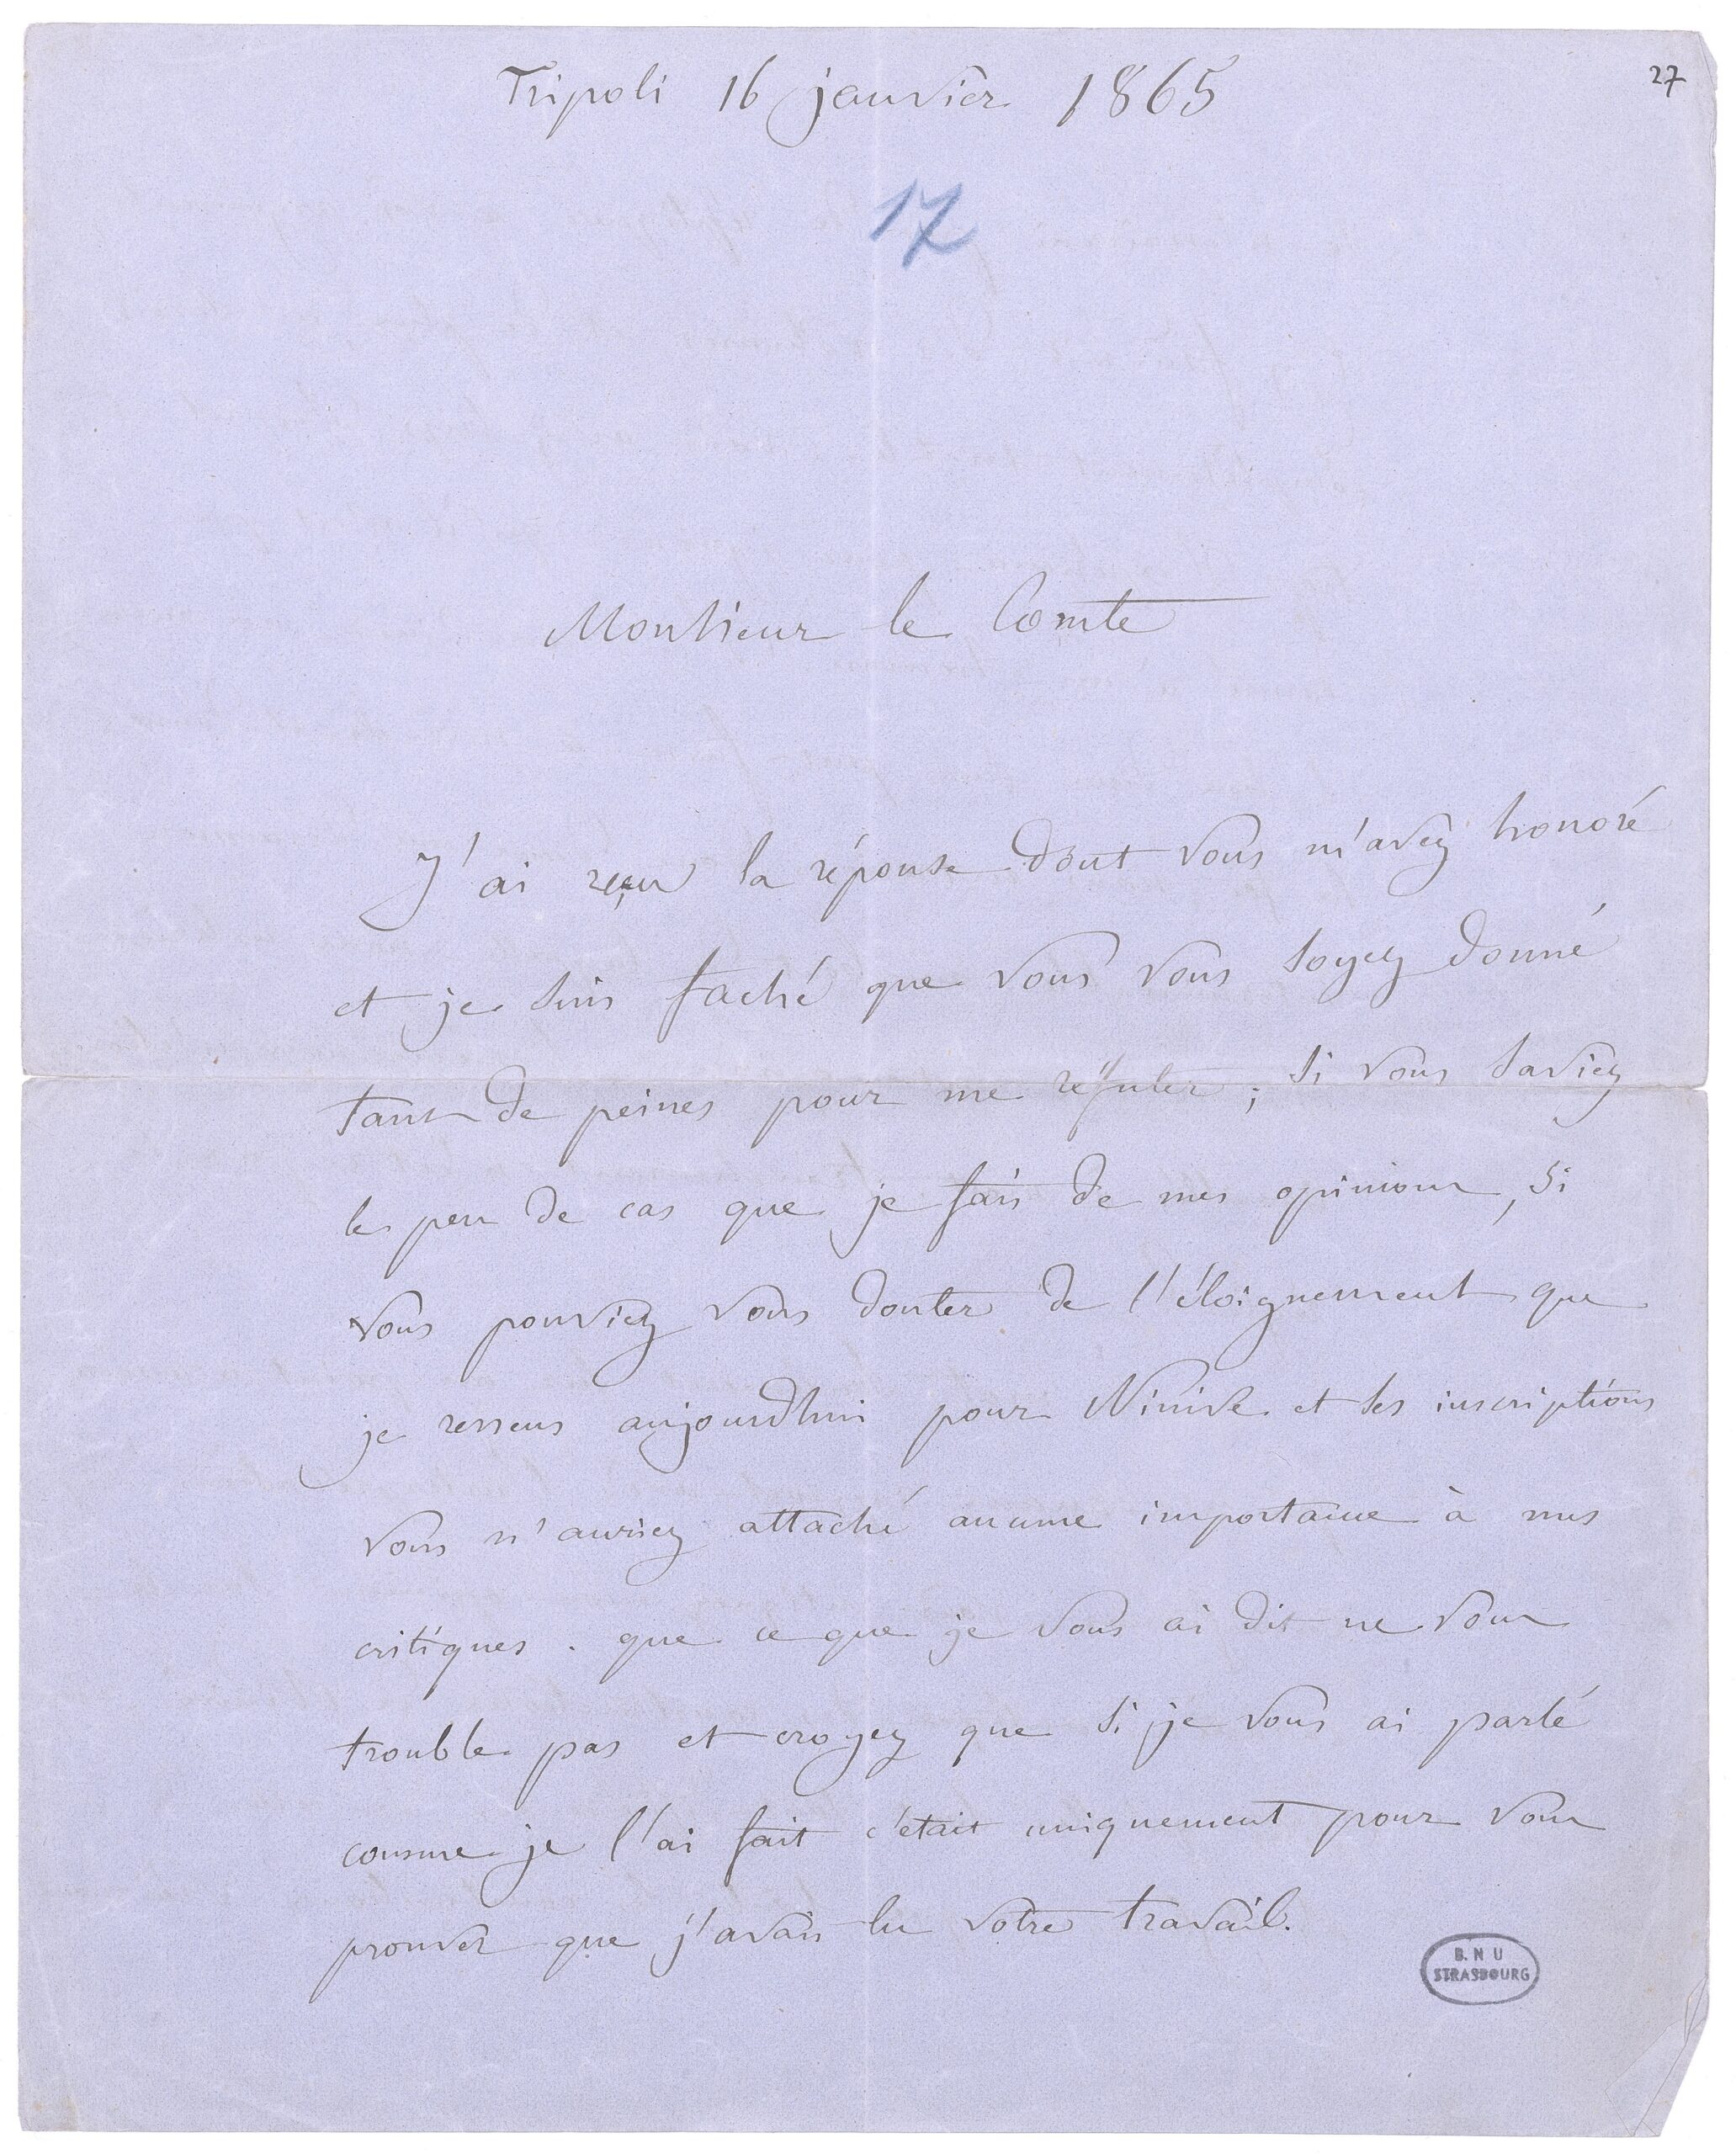 Tripoli 16 janvier 1865
27
17
Monsieur le Comte
J'ai reçu la réponse dont vous m'avez honoré
et je suis faché que vous vous soyez donné
tant de peines pour me réfuter ; si vous saviez
le peu de cas que je fais de mes opinions, si
vous pouviez vous douter de l'éloignement que
je ressens aujourdhui pour Ninive et ses inscriptions
vous n'auriez attaché aucune importance à mes
critiques . que ce que je vous ai dit ne vous
trouble pas et croyez que si je vous ai parlé
comme je l'ai fait c'était uniquement pour vous
prouver que j'avais lu votre travail.
B.N U
STRASBOURG